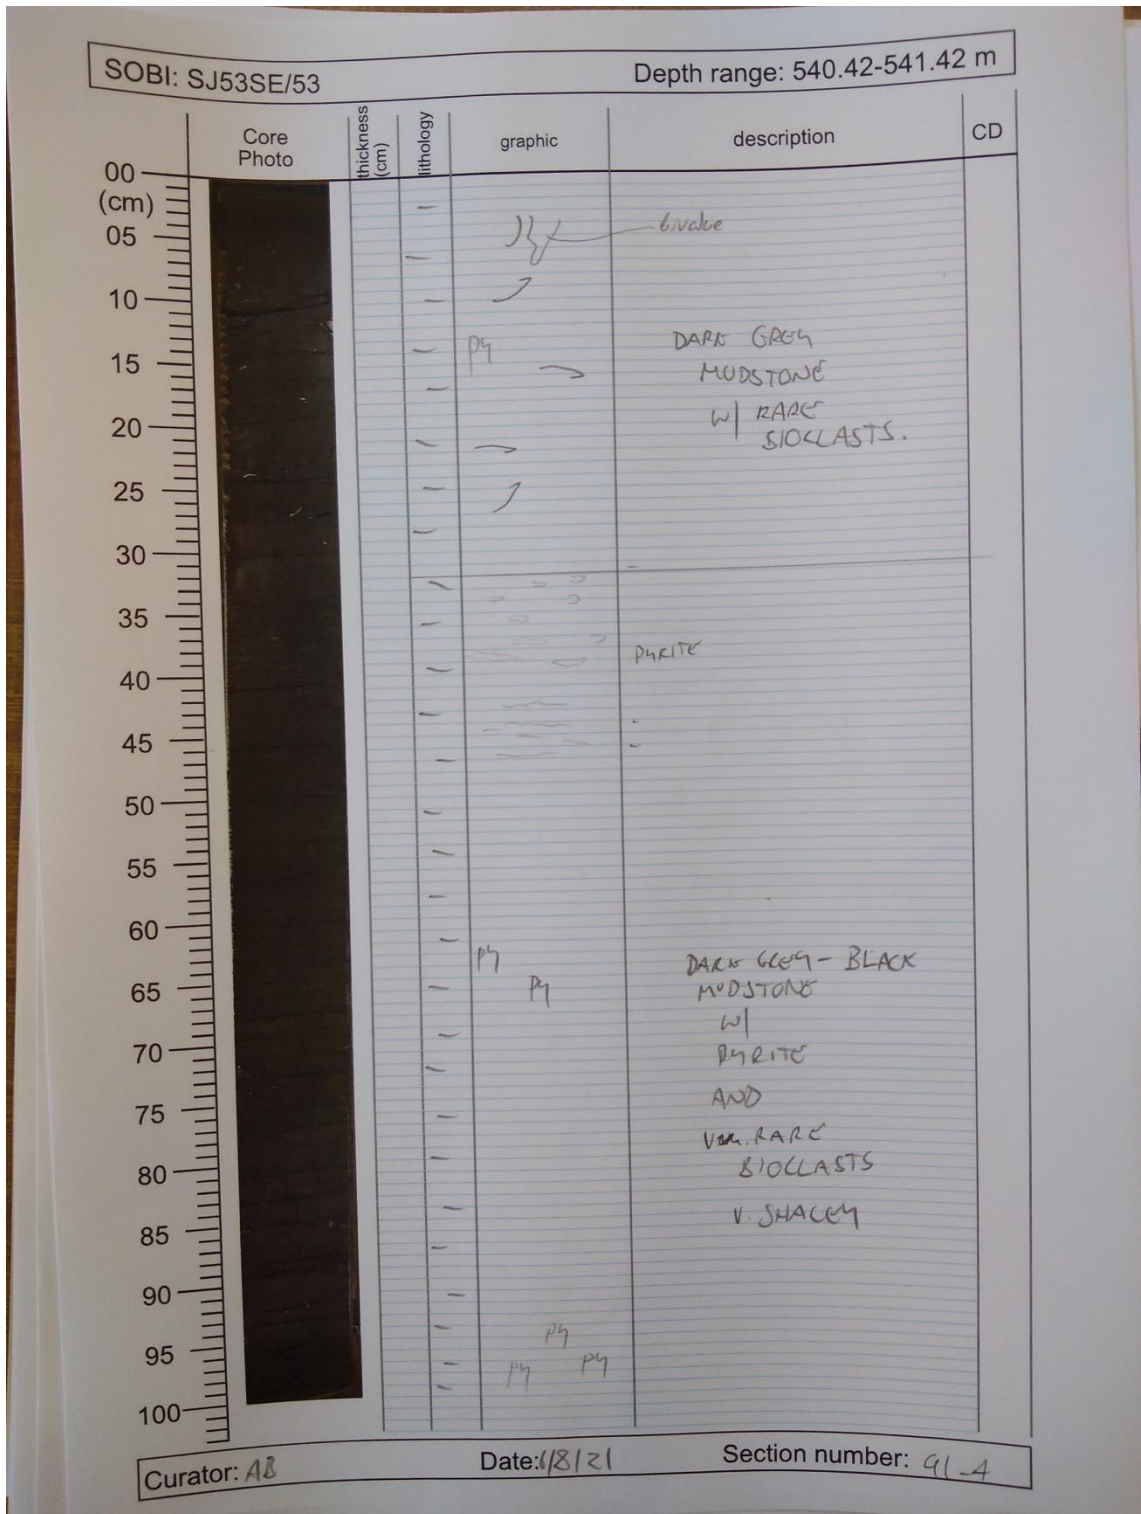 SOBI: SJ53SE/53
Depth range: 540.42-541.42 m
Core
Photo
thickness
(cm)
lithology
graphic
description
CD
00
(cm)
05
10
15
20
25
30
35
40
45
50
55
60
65
70
75
80
85
90
95
100
bivalve
py
DARK GREY
MUDSTONE
w/ RARE
BIOCLASTS.
PYRITE
py
py
DARK GREY - BLACK
MUDSTONE
w/
PYRITE
AND
RARE
BIOCLASTS
V. SHALEY
py
py
py
Curator: AB
Date: /8/21
Section number: